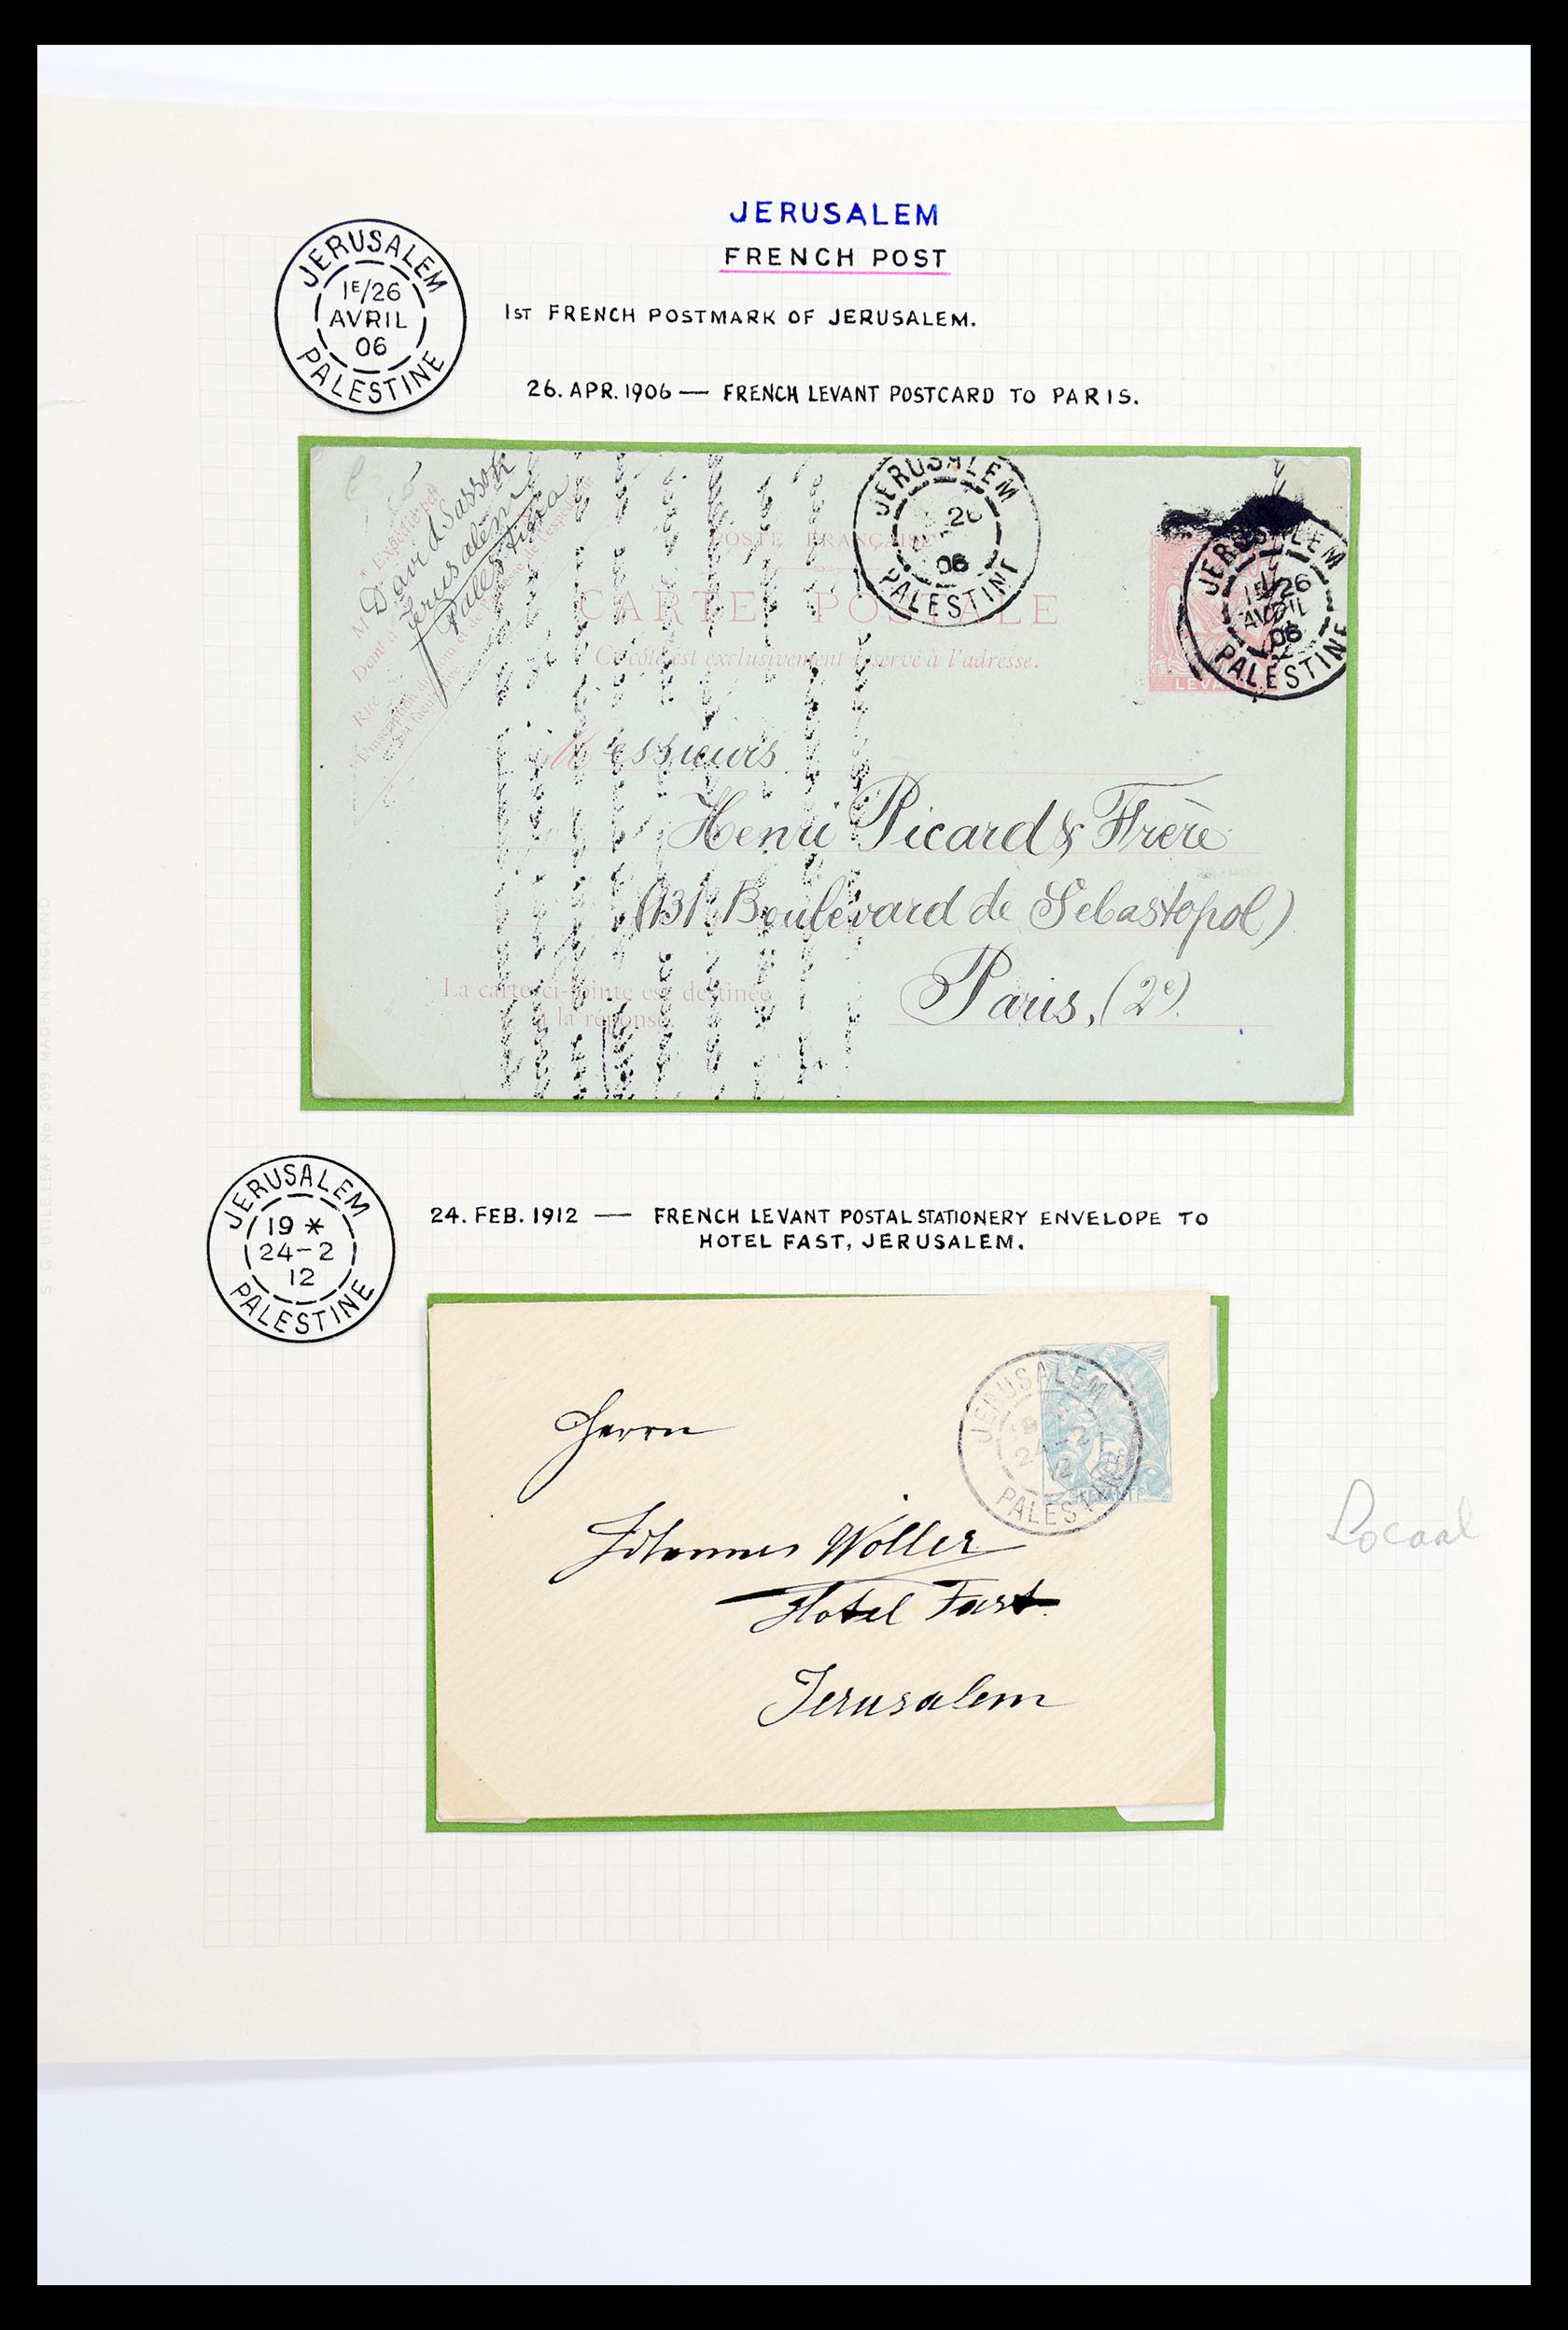 JERUSALEM
FRENCH POST
JERUSALEM
1E/26
AVRIL
06
PALESTINE
1ST FRENCH POSTMARK OF JERUSALEM.
26. APR. 1906 — FRENCH LEVANT POSTCARD TO PARIS.
* Expédié par
M David Sassoon
Jerusalem
Palestina
Demt à
Rue
POSTE FRANÇAISE
CARTE POSTALE
Ce côté est exclusivement réservé à l'adresse.
JERUSALEM
26
06
PALESTINE
JERUSALEM
1E/26
AVRIL
06
PALESTINE
LEVANT
Messieurs
Henri Picard & Frère
(131 Boulevard de Sebastopol)
Paris, (2e).
La carte ci-jointe est destinée
à la réponse.
S G UTILE LEAF No. 3099 MADE IN ENGLAND
JERUSALEM
19 *
24-2
12
PALESTINE
24. FEB. 1912 — FRENCH LEVANT POSTAL STATIONERY ENVELOPE TO
HOTEL FAST, JERUSALEM.
JERUSALEM
24-2
12
PALESTINE
Herrn
Johannes Woller
Hotel Fast
Jerusalem
Locaal